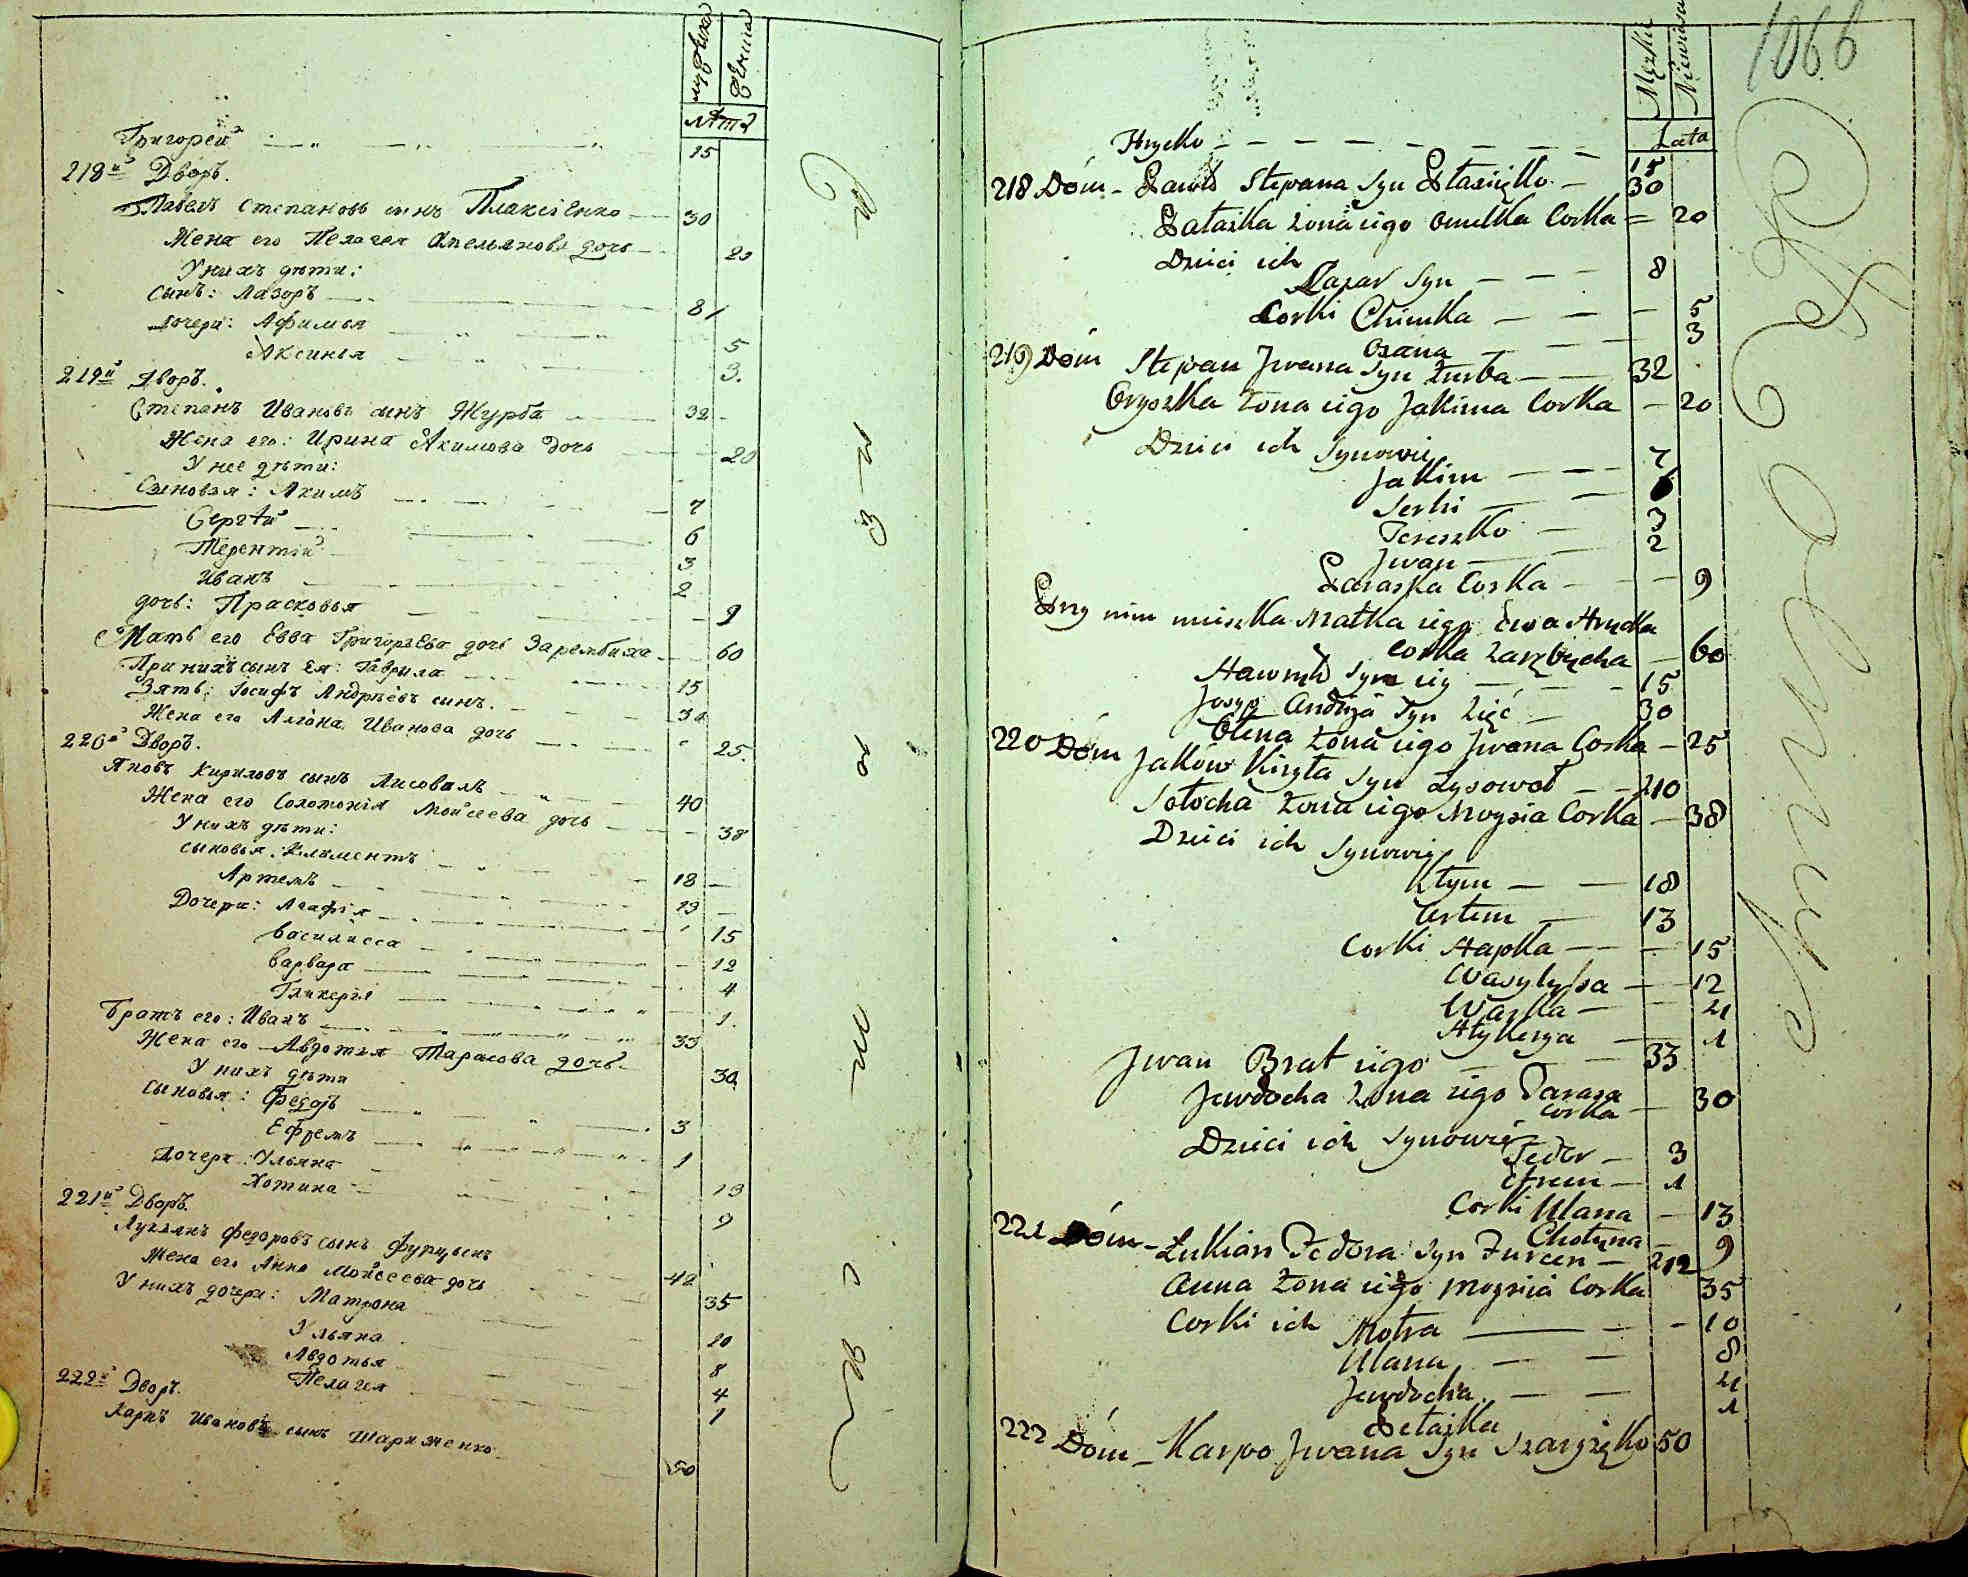 мужеска
женска
лѣта
Григорей 15
218й Дворъ.
Павелъ Степановъ сынъ Плаксіенко 30
Жена его Пелагея Омельянова дочь 20
У нихъ дѣти:
сынъ: Лазоръ 8
дочери: Афимья 5
Аксинья 3.
219й Дворъ.
Степанъ Ивановъ сынъ Журба 32
Жена его: Ирина Акимова дочь 20
У нее дѣти:
Сыновья: Акимъ 7
Сергѣй 6
Терентій 3
Иванъ 2
дочь: Прасковья 9
Мать его Евва Григорьева дочь Зарембиха 60
При нихъ сынъ ея: Гаврила 15
Зять: Іосифъ Андрѣевъ сынъ. 30
Жена его Алёна Иванова дочь 25.
220й Дворъ.
Яковъ Кириловъ сынъ Лисовалъ 40
Жена его Соломонія Мойсеева дочь 38
У нихъ дѣти:
сыновья: Климентъ 18
Артемъ 13
Дочери: Агафія 15
Василисса 12
Варвара 4
Гликерія 1.
Братъ его: Иванъ 33
Жена его Авдотья Тарасова дочь. 30
У нихъ дѣти
сыновья: Федоръ 3
Ефремъ 1
Дочери: Ульяна 13
Хотина 9
221й Дворъ.
Лукьянъ Федоровъ сынъ Фурцынъ 42
Жена его Анна Мойсеева дочь 35
У нихъ дочери: Матрона 10
Ульяна 8
Авдотья 4
Пелагея 1
222й Дворъ.
Карпъ Ивановъ сынъ Шариженко 50
1066
Męzka
Niewiasta
Lata
Hrycko 15
218 Dóm - Pawło Stepana Syn Płaxięko - 30
Pałażka żona iego Omelka Corka = 20
Dzieci ich
Łazar Syn 8
Corki Chimka 5
Oxana 3
219 Dóm Stepan Jwana Syn Żurba 32
Oryszka żona iego Jakima Corka - 20
Dzieci ich Synowie
Jakim 7
Serhi 6
Tereszko 3
Jwan 2
Paraska Corka 9
Przy nim mieszka Matka iego Ewa Hrycka
Corka Zarębicha 60
Hawryło Syn iey 15
Josyp Andrzja Syn Zięć 30
Olena żona iego Jwana Corka - 25
220 Dóm Jaków Kiryła Syn Łysowoł 40
Sołocha żona iego Moysia Corka - 38
Dzieci ich Synowie
Kłym 18
Artem 13
Corki Hapka 15
Wasylyssa 12
Warka 4
Hłykerya 1
Jwan Brat iego 33
Jewdocha żona iego Tarasa
Corka 30
Dzieci ich Synowie
Fedor 3
Efrem 1
Corki Ulana 13
Chotyna 9
221 Dóm - Łukian Fedora Syn Furcen 42
Anna żona iego Moysieia Corka 35
Corki ich Motra 10
Ulana 8
Jewdocha 4
Pełażka 1
222 Dóm - Karpo Jwana Syn Szaryżęko 50